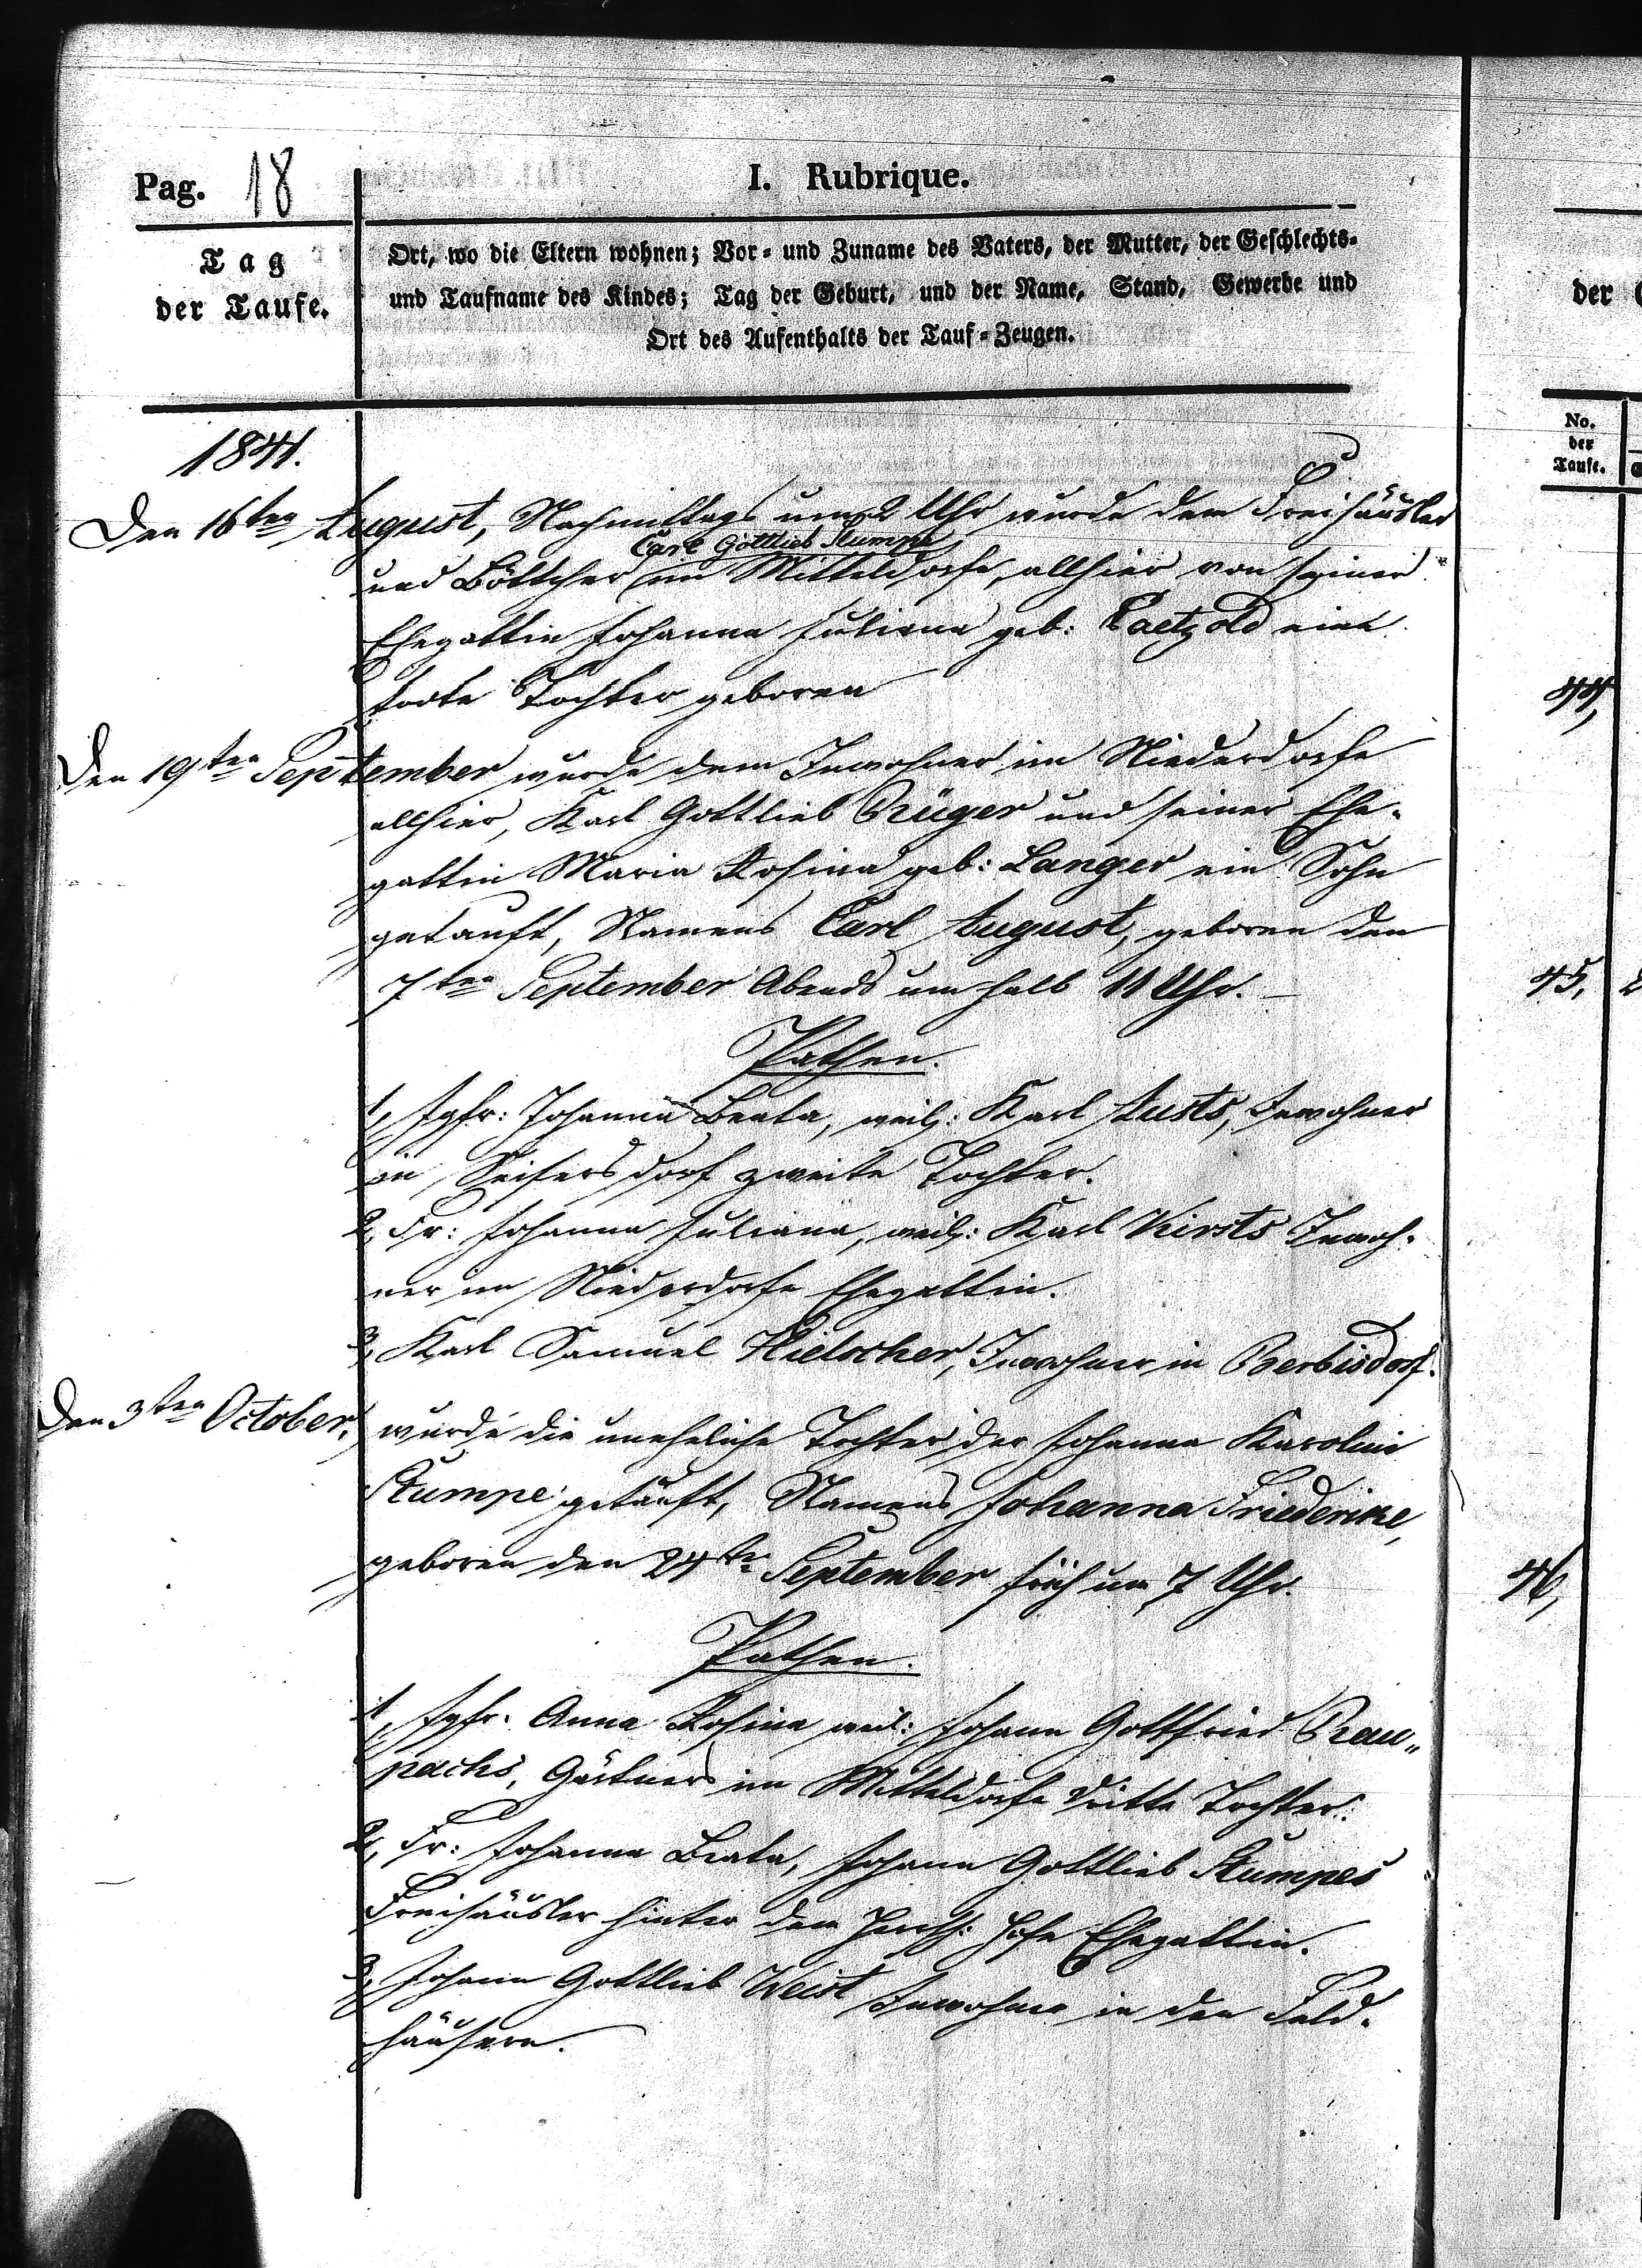 Pag. 18
I. Rubrique.
Tag
der Taufe.
Ort, wo die Eltern wohnen; Vor- und Zuname des Vaters, der Mutter, der Geschlechts-
und Taufname des Kindes; Tag der Geburt, und der Name, Stand, Gewerbe und
Ort des Aufenthalts der Tauf-Zeugen.
1841.
Den 16ten August, Nachmittags um 2 Uhr wurde dem Freihäusler
Carl Gottlieb Stumpe
und Böttcher im Mitteldorfe, allhier von seiner
Ehegattin Johanna Juliana geb: Paetzold eine
todte Tochter geboren
Den 19ten September wurde dem Inwohner im Niederdorfe
allhier, Karl Gottlieb Rüger und seiner Ehe-
gattin Maria Rosina geb: Langer ein Sohn
getauft, Namens Carl August, geboren den
7ten September Abends um halb 11 Uhr. –
Pathen.
1, Jgfr: Johanna Beata, weil: Karl Austs, Inwohner
in Seifersdorf zweite Tochter.
2, Fr: Johanna Juliana, weil: Karl Kirsts Inwoh-
ner im Niederdorfe Ehegattin.
3, Karl Samuel Hielscher, Inwohner in Berbisdorf.
Den 3ten October, wurde die uneheliche Tochter der Johanne Karoline
Stumpe getauft, Namens Johanna Friederike,
geboren den 24ten September früh um 7 Uhr.
Pathen.
1, Jgfr. Anna Rosina weil: Johann Gottfried Rau„
pachs, Gärtners im Mitteldorfe dritte Tochter.
2, Fr: Johanne Beata, Johann Gottlieb Stumpes
Freihäusler hinter dem Hofe Ehegattin.
3, Johann Gottlieb Weist Inwohner in den Feld-
häusern.
der
No.
der
Taufe.
44,
45,
46,